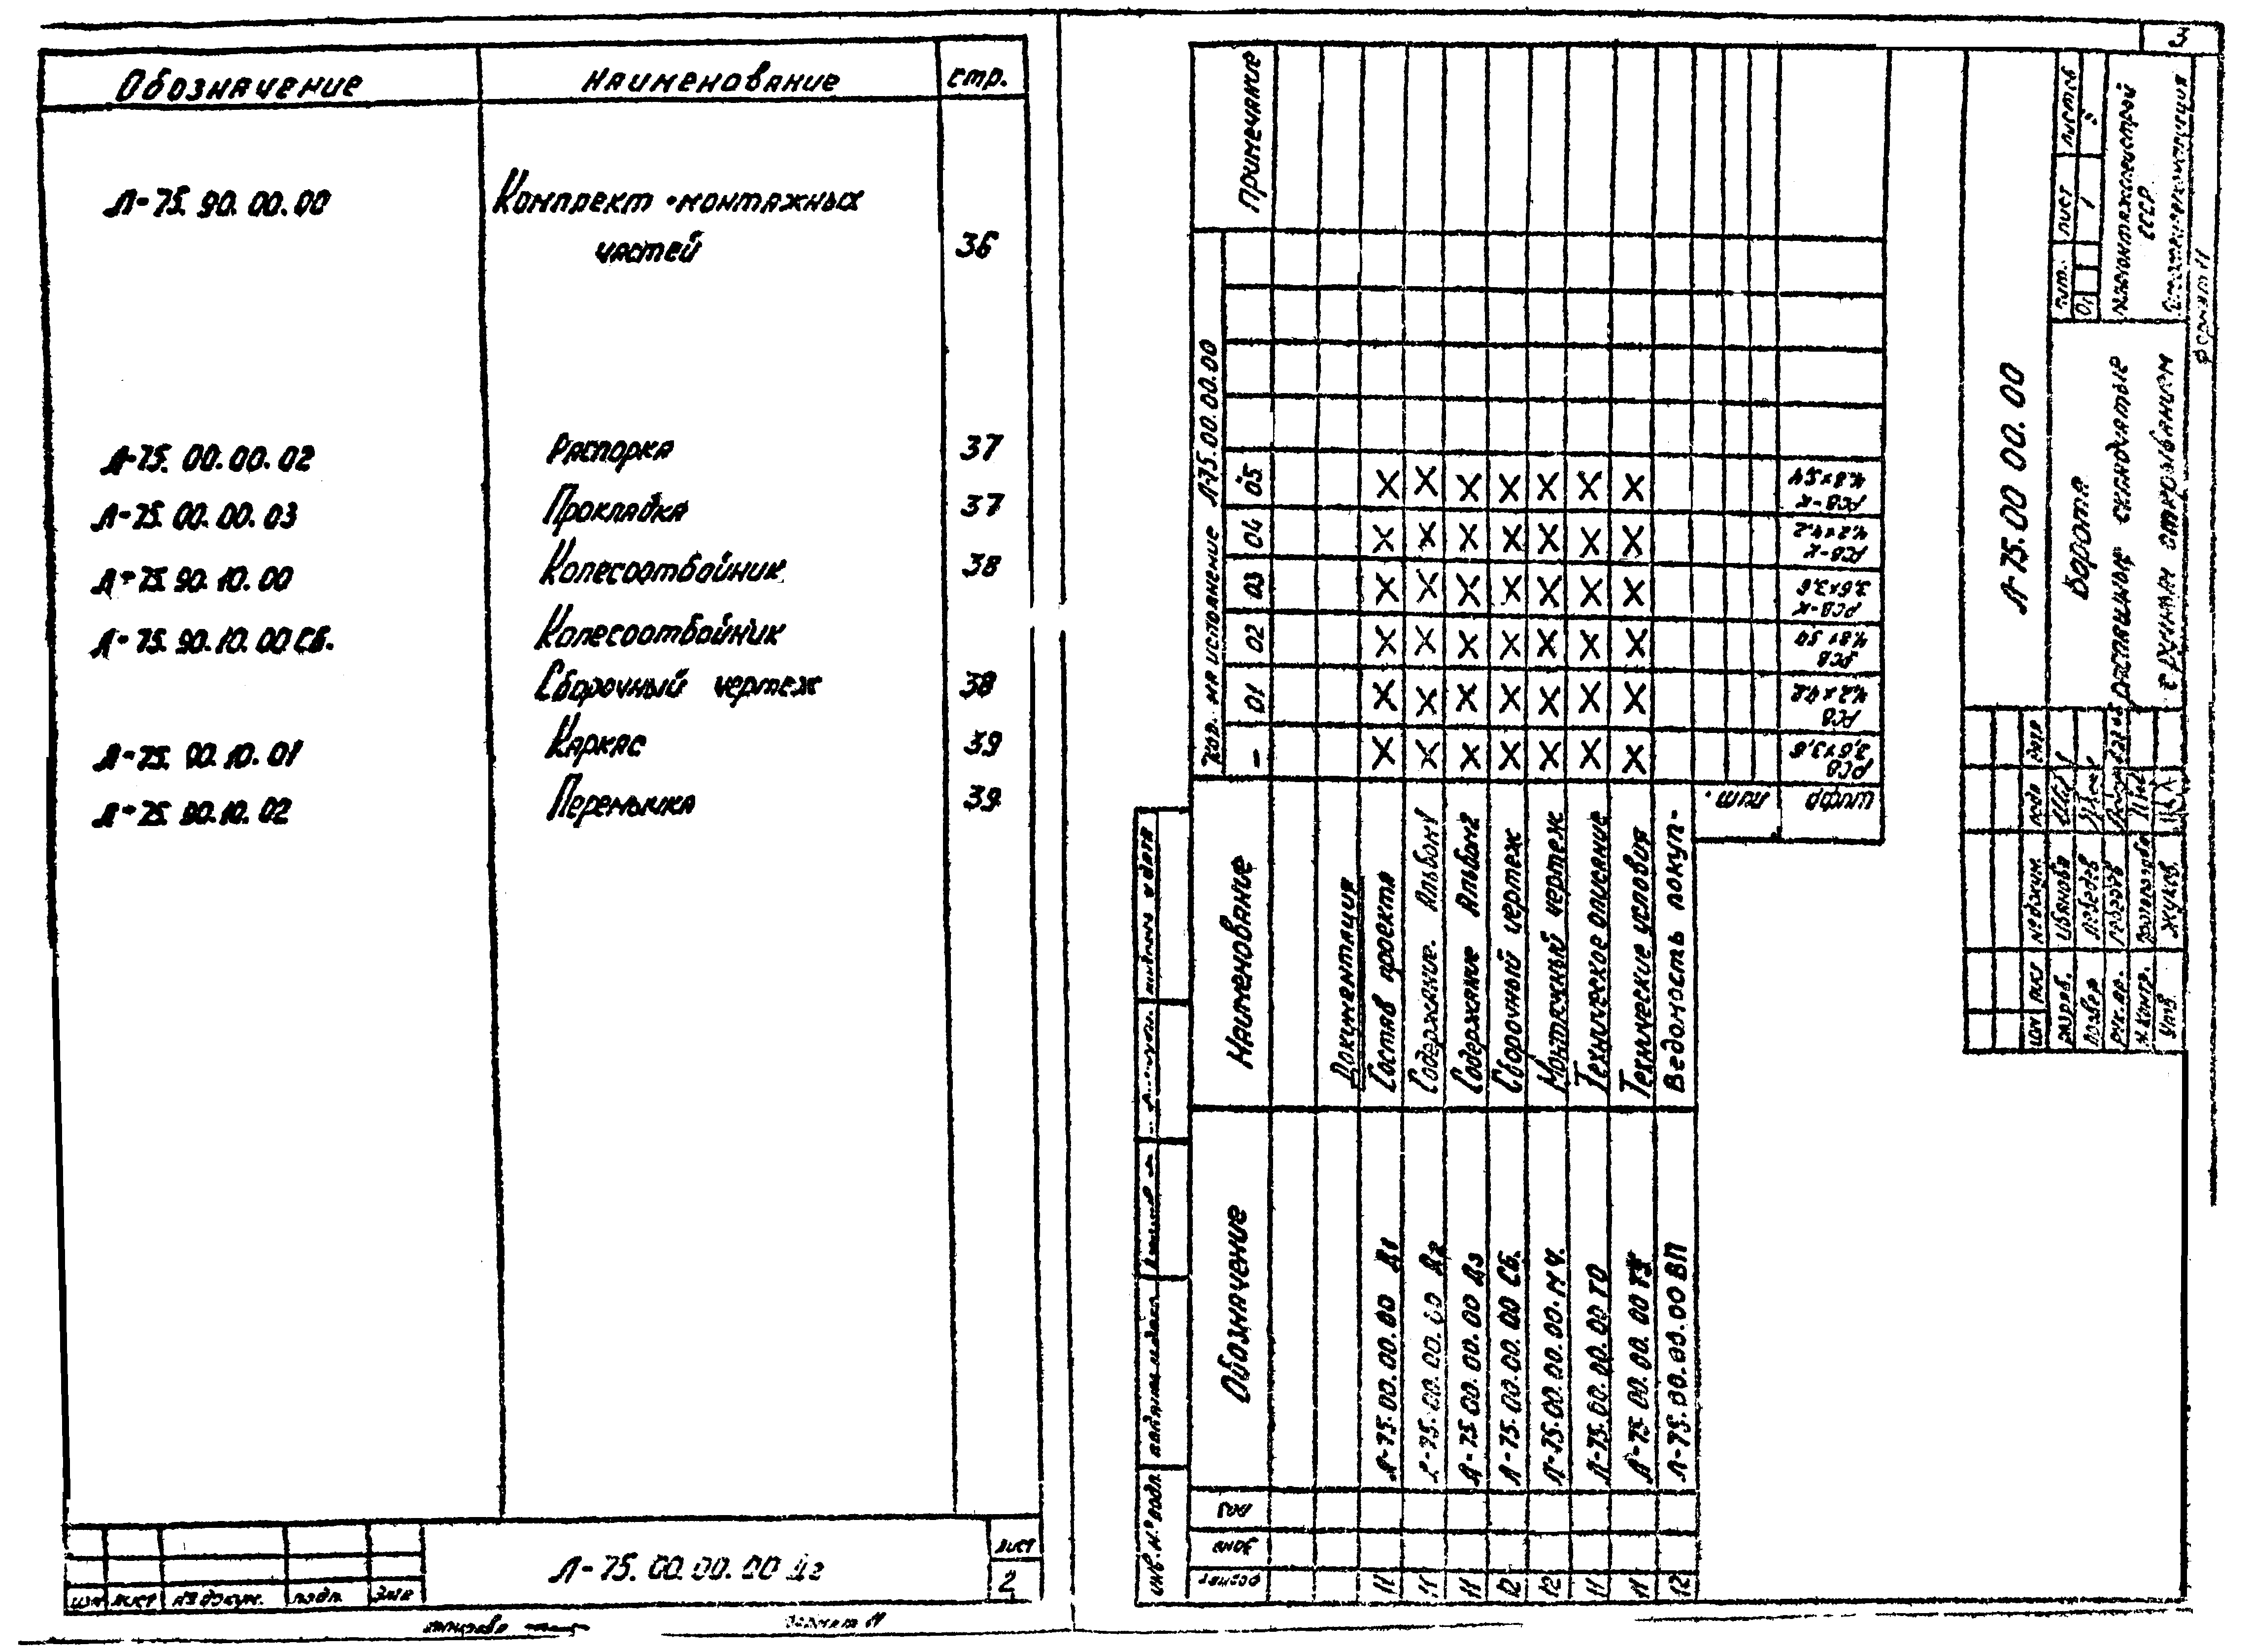 Обозначение Наименование стр.
Л-75.90.00.00 Комплект монтажных
частей 36
Л-75.00.00.02 Распорка 37
Л-75.00.00.03 Прокладка 37
Л-75.90.10.00 Колесоотбойник 38
Л-75.90.10.00 СБ. Колесоотбойник
Сборочный чертеж 38
Л-75.90.10.01 Каркас 39
Л-75.90.10.02 Перемычка 39
Л-75.00.00.00 Д2
лист
2
изм лист № докум. подп.
Формат 11
3
Формат Зона Поз. Обозначение Наименование Кол. на исполнение Л-75.00.00.00 Примечание
- 01 02 03 04 05
Документация
11 Л-75.00.00.00 Д1 Состав проекта X X X X X X
11 Л-75.00.00.00 Д2 Содержание. Альбом 1 X X X X X X
11 Л-75.00.00.00 Д3 Содержание Альбом 2 X X X X X X
12 Л-75.00.00.00 СБ. Сборочный чертеж X X X X X X
12 Л-75.00.00.00.МЧ. Монтажный чертеж X X X X X X
11 Л-75.00.00.00 ТО Техническое описание X X X X X X
11 Л-75.00.00.00 ТУ Технические условия X X X X X X
12 Л-75.00.00.00 ВП Ведомость покуп-
лит.
шифр
РСВ 3,6х3,6
РСВ 4,2х4,2
РСВ
РСВ-К 3,6х3,6
РСВ-К 4,2х4,2
РСВ-К 4,8х5,4
Л-75.00.00.00
изм лист № докум. подп дата
Разраб. Иванова
Провер Лебедев
рук.гр. Лебедев
Н.контр.
Утв. Жуков
Ворота
распашные складчатые
с ручным открыванием
лит. лист листов
1
Минмонтажспецстрой
СССР
Формат 11
инв. № подл.